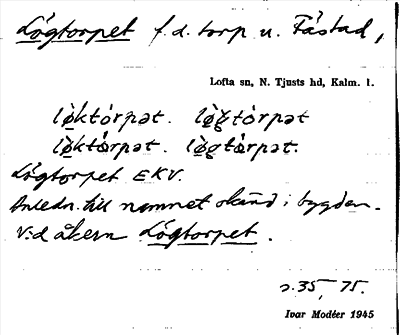 Lögtorpet f.d. torp u. Fästad,
Lofta sn, N. Tjusts hd, Kalm. l.
lø̀którpət. lø̀gtórpət
lø̀którpət. lø̀gtórpət.
Lögtorpet EKV.
Anledn. till namnet okänd i bygden.
Vid åkern Lögtorpet.
s. 35, 75.
Ivar Modéer 1945